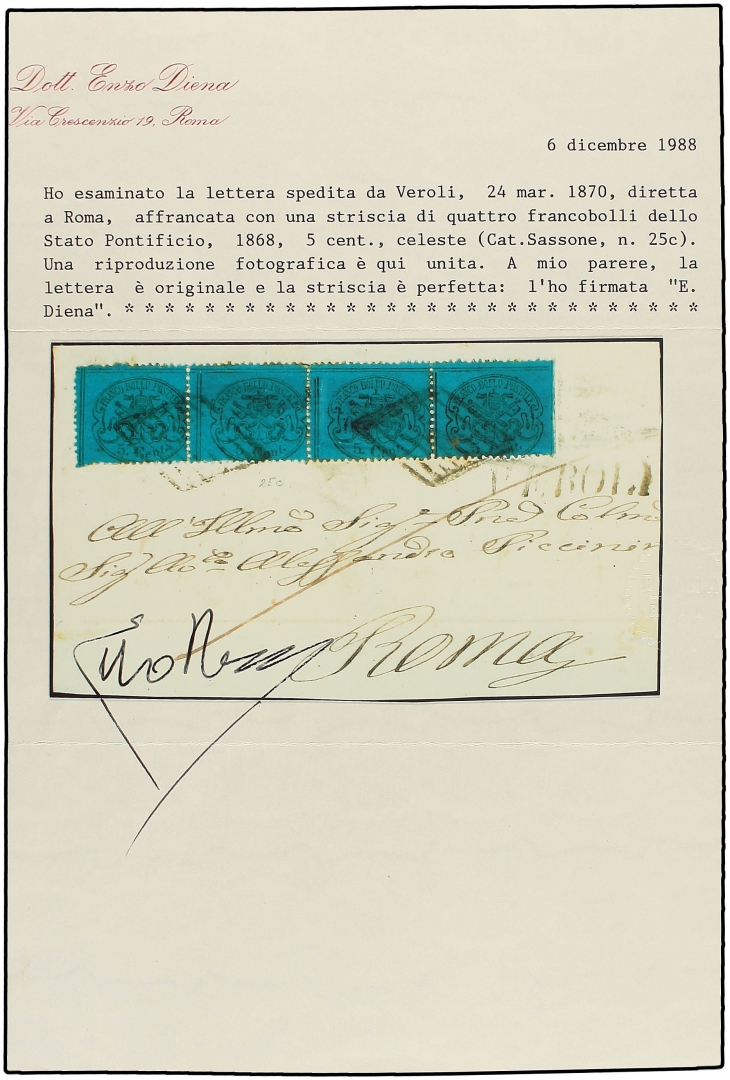 Dott. Enzo Diena
Via Crescenzio 19, Roma
6 dicembre 1988
Ho esaminato la lettera spedita da Veroli, 24 mar. 1870, diretta
a Roma, affrancata con una striscia di quattro francobolli dello
Stato Pontificio, 1868, 5 cent., celeste (Cat.Sassone, n. 25c).
Una riproduzione fotografica è qui unita. A mio parere, la
lettera è originale e la striscia è perfetta: l'ho firmata "E.
Diena". * * * * * * * * * * * * * * * * * * * * * * * * * * * * *
25c
VEROLI
All' Illmo Sigr
Sigr Alessandro Piccinin
Roma